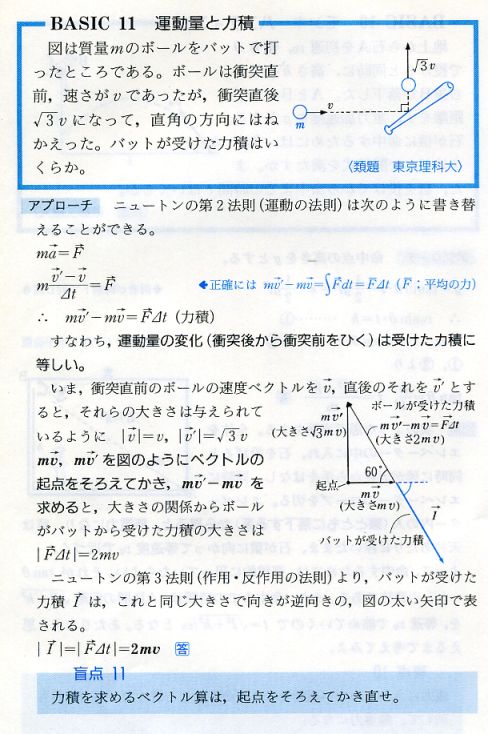 BASIC 11 運動量と力積
図は質量mのボールをバットで打
ったところである。ボールは衝突直
前，速さがvであったが，衝突直後
√3 vになって，直角の方向にはね
かえった。バットが受けた力積はい
くらか。
√3 v
v
m
〈類題 東京理科大〉
アプローチ ニュートンの第2法則(運動の法則)は次のように書き替
えることができる。
ma⃗=F⃗
m (v⃗′−v⃗)/Δt=F⃗
←正確には mv⃗′−mv⃗=∫F⃗dt=F̄Δt (F̄：平均の力)
∴ mv⃗′−mv⃗=F⃗Δt (力積)
すなわち，運動量の変化(衝突後から衝突前をひく)は受けた力積に
等しい。
いま，衝突直前のボールの速度ベクトルを v⃗，直後のそれを v⃗′とす
ると，それらの大きさは与えられて
いるように |v⃗|=v，|v⃗′|=√3 v
mv⃗，mv⃗′を図のようにベクトルの
起点をそろえてかき，mv⃗′−mv⃗ を
求めると，大きさの関係からボール
がバットから受けた力積の大きさは
|F⃗Δt|=2mv
mv⃗′
(大きさ√3mv)
ボールが受けた力積
mv⃗′−mv⃗=F⃗Δt
(大きさ2mv)
60°
起点
mv⃗
(大きさmv)
I⃗
バットが受けた力積
ニュートンの第3法則(作用・反作用の法則)より，バットが受けた
力積 I⃗ は，これと同じ大きさで向きが逆向きの，図の太い矢印で表
される。
|I⃗|=|F⃗Δt|=2mv 答
盲点 11
力積を求めるベクトル算は，起点をそろえてかき直せ。